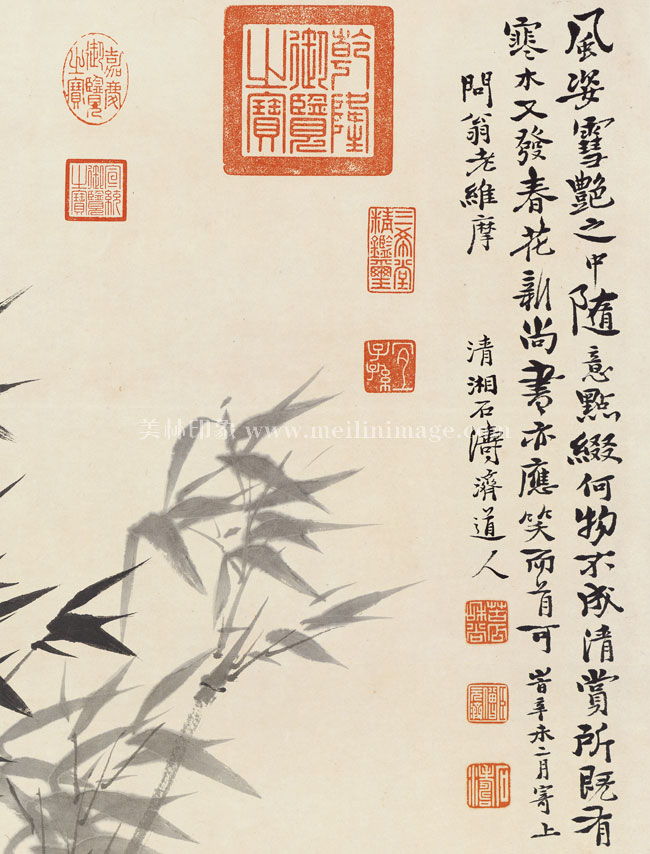 風姿雪艷之中隨意點綴何物不成清賞所既有
寒木又發春花新尚書亦應笑而首可 旹辛未二月寄上
問翁老維摩
清湘石濤濟道人
乾隆御覽之寶
嘉慶御覽之寶
宣統御覽之寶
三希堂精鑑璽
宜子孫
石濤
美林印象 www.meilinimage.com